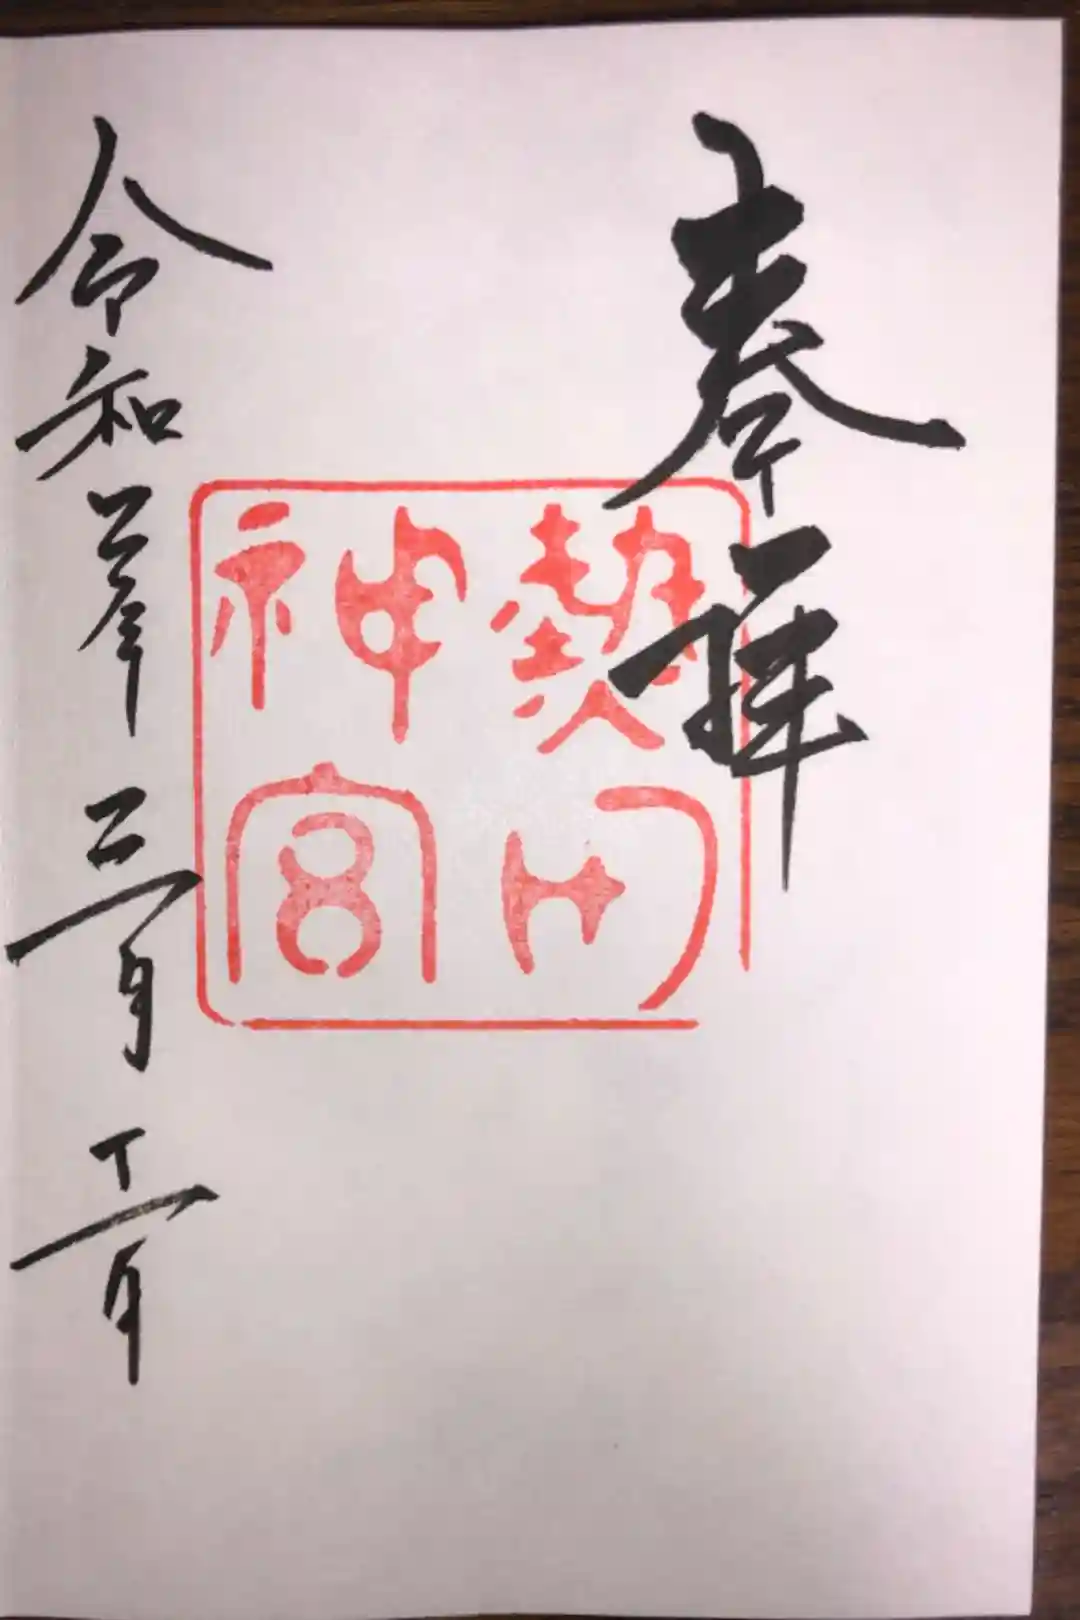 奉拝
熱田
神宮
令和二年三月十一日